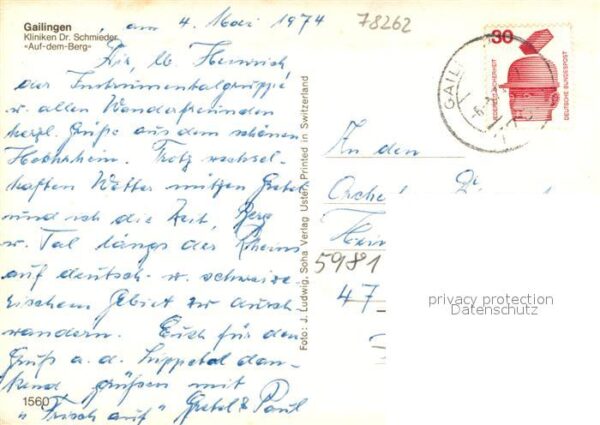 Gailingen
Kliniken Dr. Schmieder
«Auf-dem-Berg»
am 4. Mai 1974
78262
Dir, lb. Heinrich,
der Instrumentalgruppe
u. allen Wanderfreunden
herzl. Grüße aus dem schönen
Hochrhein. Trotz wechsel-
haften Wetter nützen Gretel
und ich die Zeit, Berg
u. Tal längs des Rheins
auf deutsch- u. schweize-
rischem Gebiet zu durch-
wandern. Euch für den
Gruß a. d. Lippetal dan-
kend, grüßen mit
"Frisch auf" Gretel & Paul
1560
Foto: J. Ludwig, Soha Verlag Uster, Printed in Switzerland
30
DEUTSCHE BUNDESPOST
GAILI
An den
Orche
5981
47
privacy protection
Datenschutz